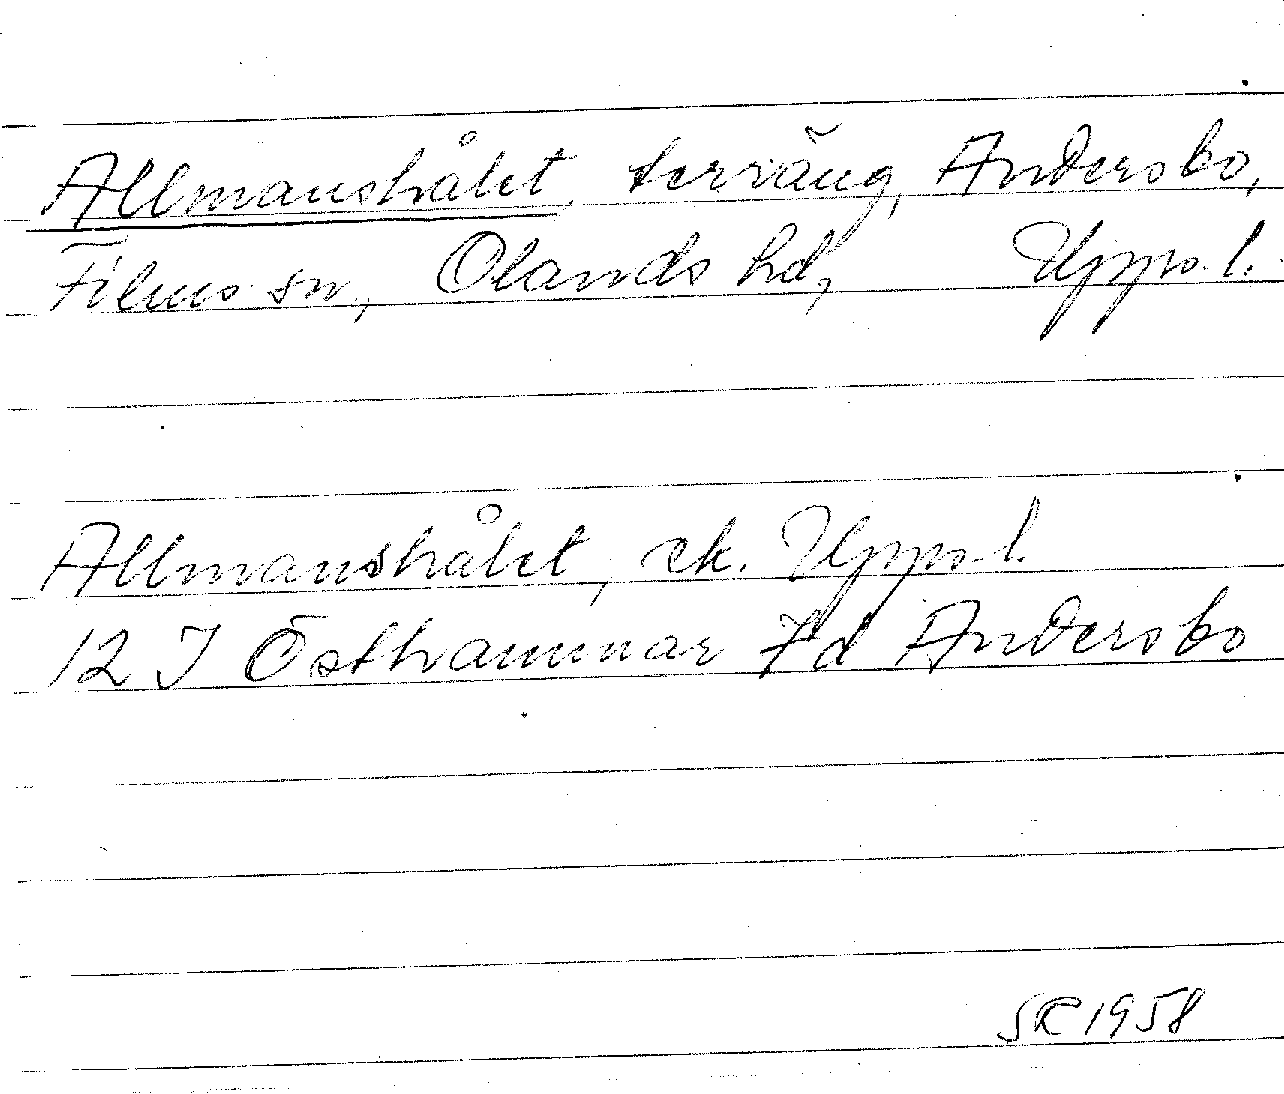 Allmanshålet, terräng, Andersbo,
Films sn, Olands hd, Upps. l.
Allmanshålet, ek. Upps. l.
12 I Östhammar 7d Andersbo
SK 1958